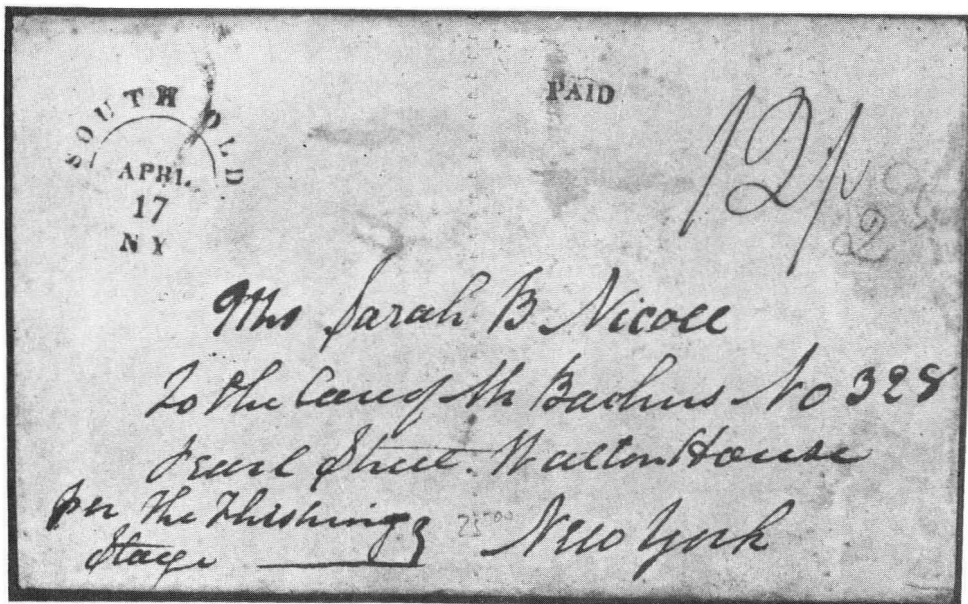 SOUTHOLD
APRIL
17
N Y
PAID
12½
Mrs Sarah B Nicoll
To the Care of Mr Bachus No 328
Pearl Street. Walton House
per The Flushing
Stage
New York